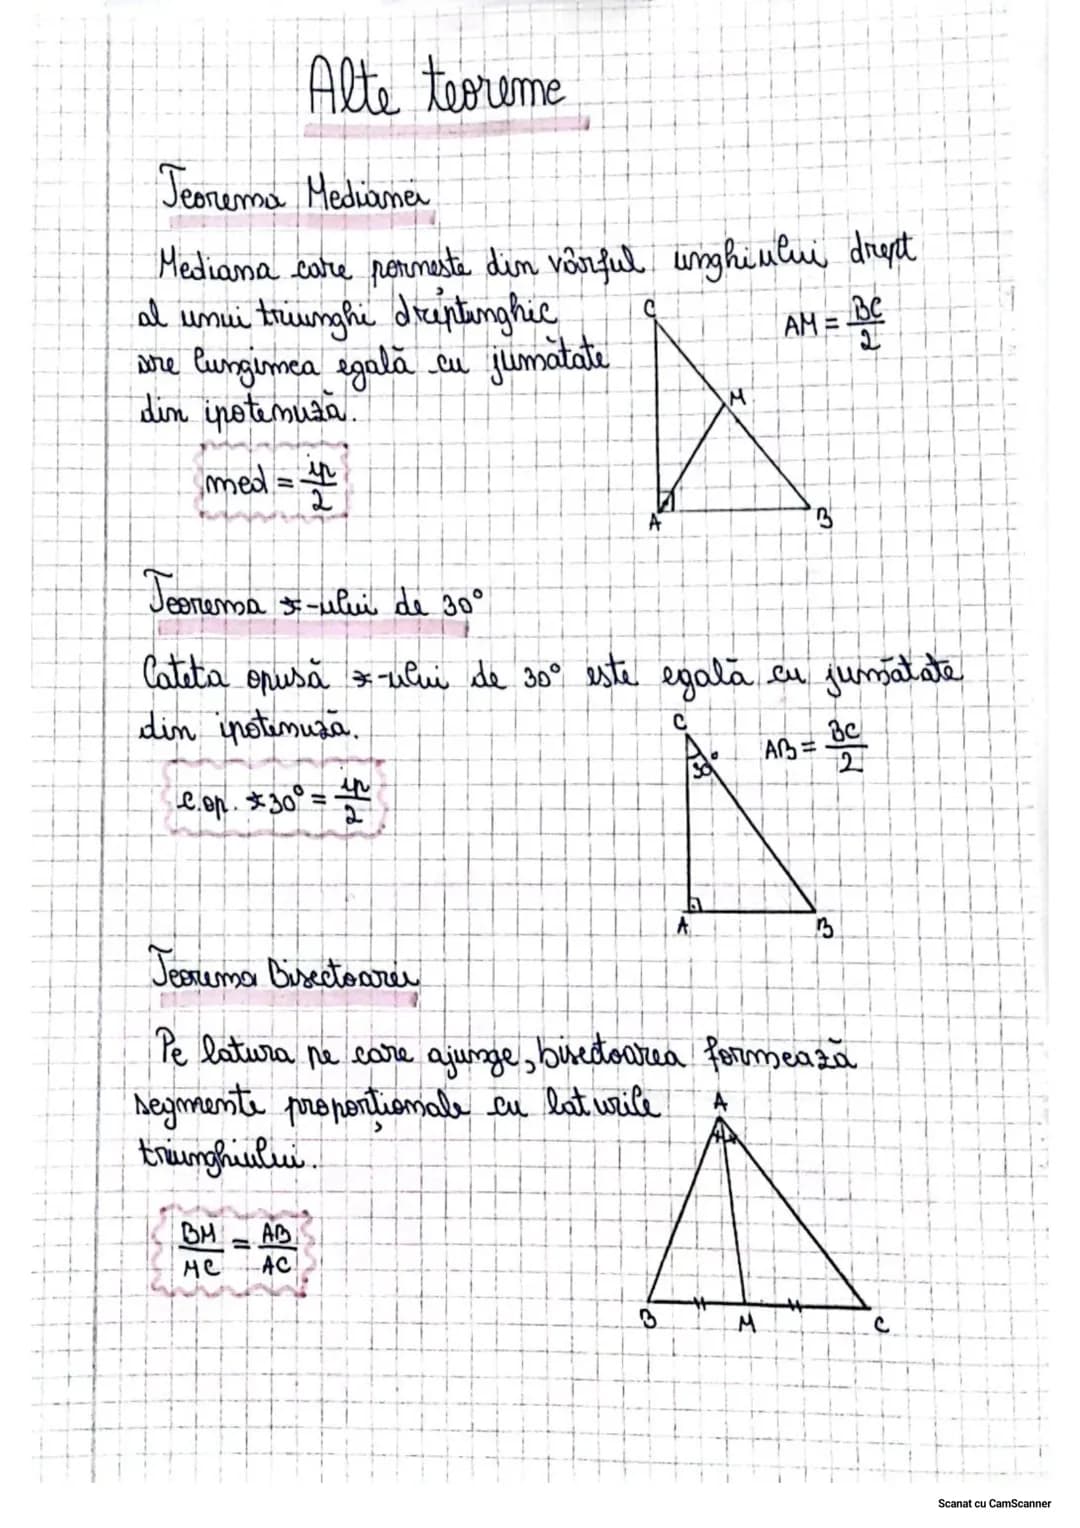 Alte teoreme
Teorema Medianei
Mediana care pornește din vârful unghiului drept
al unui triunghi dreptunghic
are lungimea egală cu jumătate
din ipotenuză.
AM = BC/2
C
M
A
B
med = ip/2
Teorema ∢-ului de 30°
Cateta opusă ∢-ului de 30° este egală cu jumătate
din ipotenuză.
AB = BC/2
C
30°
A
B
c.op. ∢30° = ip/2
Teorema Bisectoarei
Pe latura pe care ajunge, bisectoarea formează
segmente proporționale cu laturile
triunghiului.
A
B
M
C
BM/MC = AB/AC
Scanat cu CamScanner